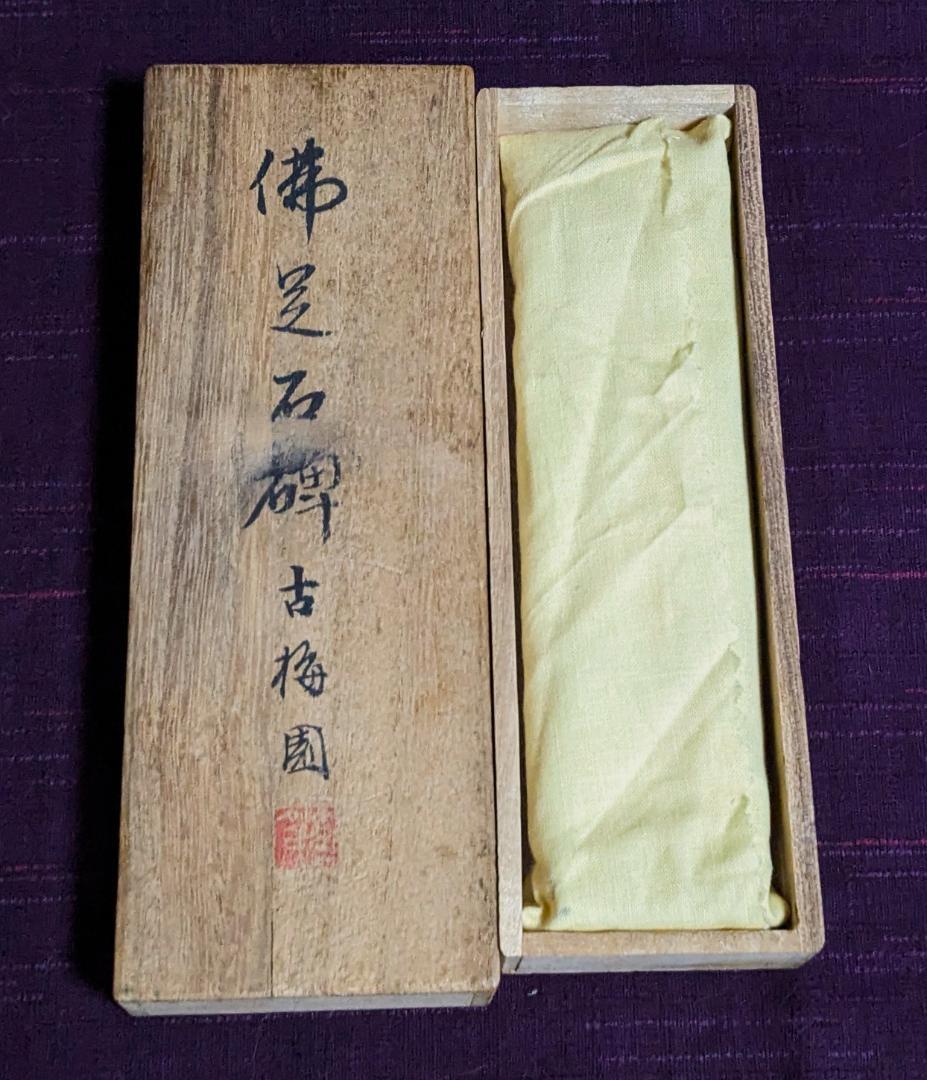 佛足石碑 古梅園